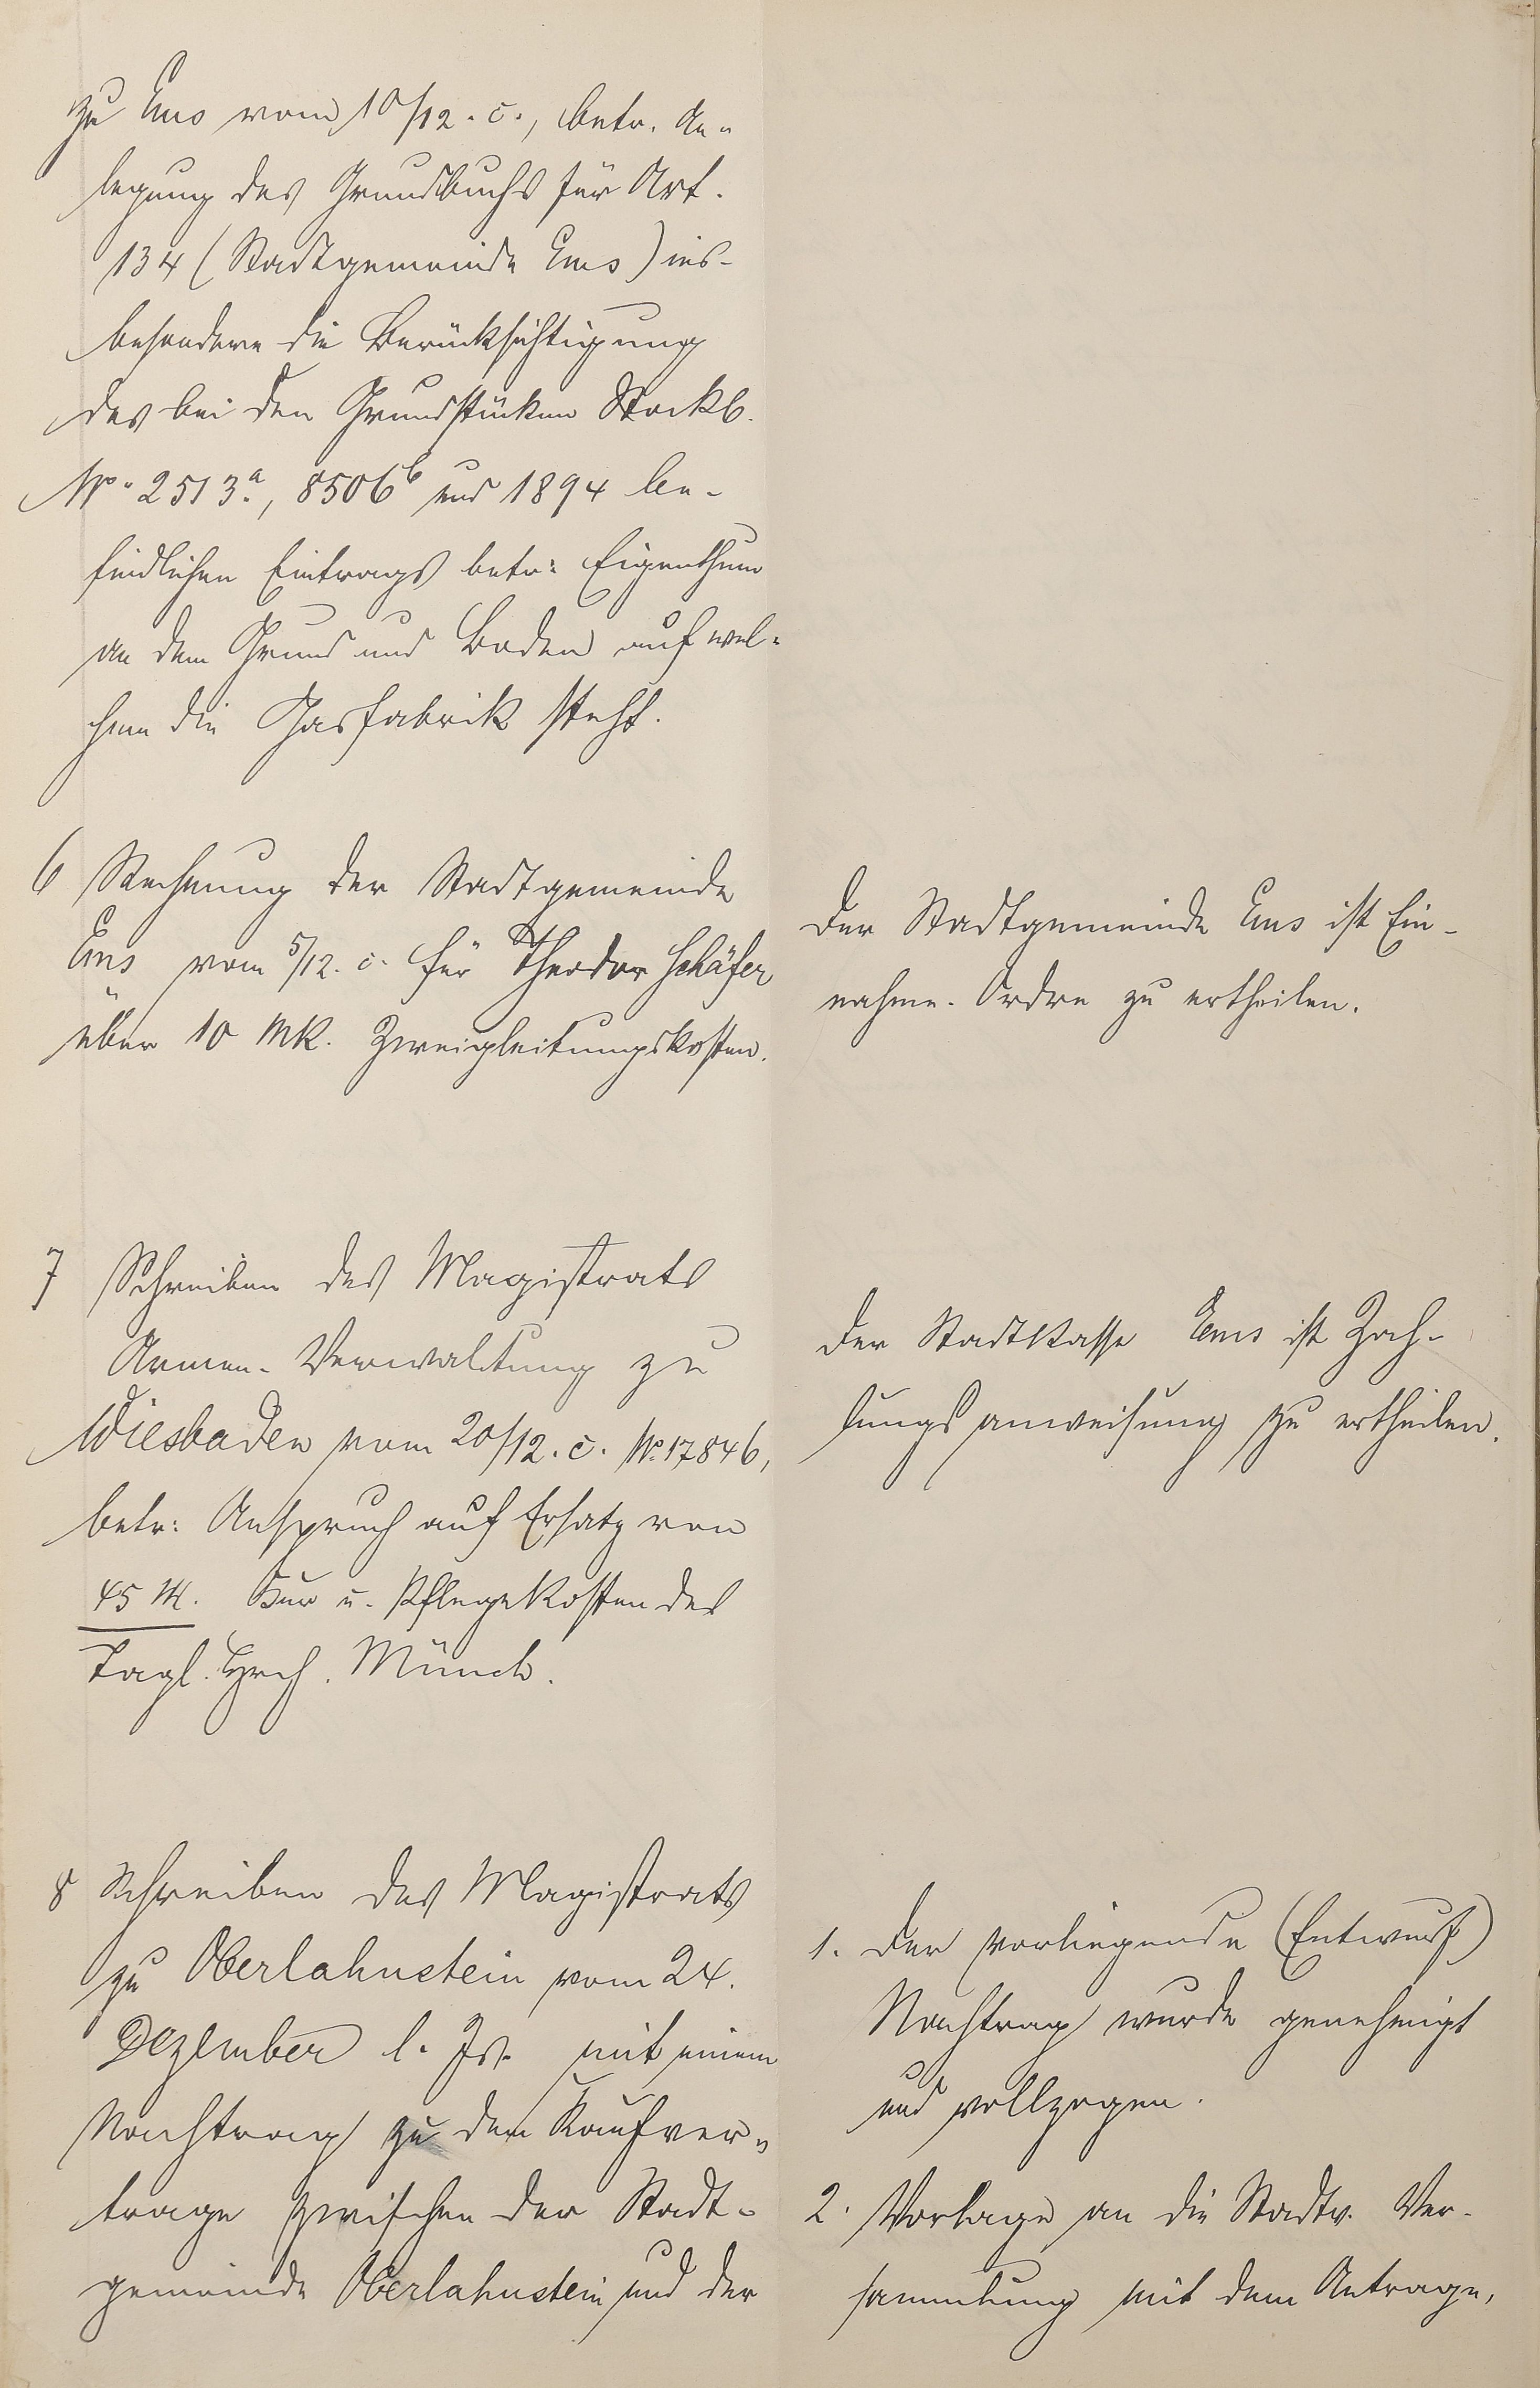 zu Ems vom 10/12. c., betr. An-
legung des Grundbuchs für Art.
134 (Stadtgemeinde Ems) ins-
besondere die Berücksichtigung
des bei den Grundstücken Stockb.
No. 2513a, 8506b und 1894 be-
findlichen Eintrags betr: Eigenthum
an dem Grund und Boden auf wel-
chem die Gasfabrik steht.
6 Rechnung der Stadtgemeinde
Ems vom 5/12. c. für Theodor Schäfer
über 10 Mk. Zweigleitungskosten.
Der Stadtgemeinde Ems ist Ein-
nahme-Ordre zu ertheilen.
7 Schreiben des Magistrats
Armen-Verwaltung zu
Wiesbaden vom 20/12. c. No. 17846,
betr: Anspruch auf Ersatz von
45 M. Kur u. Pflegekosten des
Tagl. Hrch. Münch.
Der Stadtkasse Ems ist Zah-
lungsanweisung zu ertheilen.
8 Schreiben des Magistrats
zu Oberlahnstein vom 24.
Dezember l. Js. mit einem
Nachtrag zu dem Kaufver-
trage zwischen der Stadt-
gemeinde Oberlahnstein und der
1. Der vorliegende (Entwurf)
Nachtrag wurde genehmigt
und vollzogen.
2. Vorlage an die Stadtv. Ver-
sammlung mit dem Antrage,